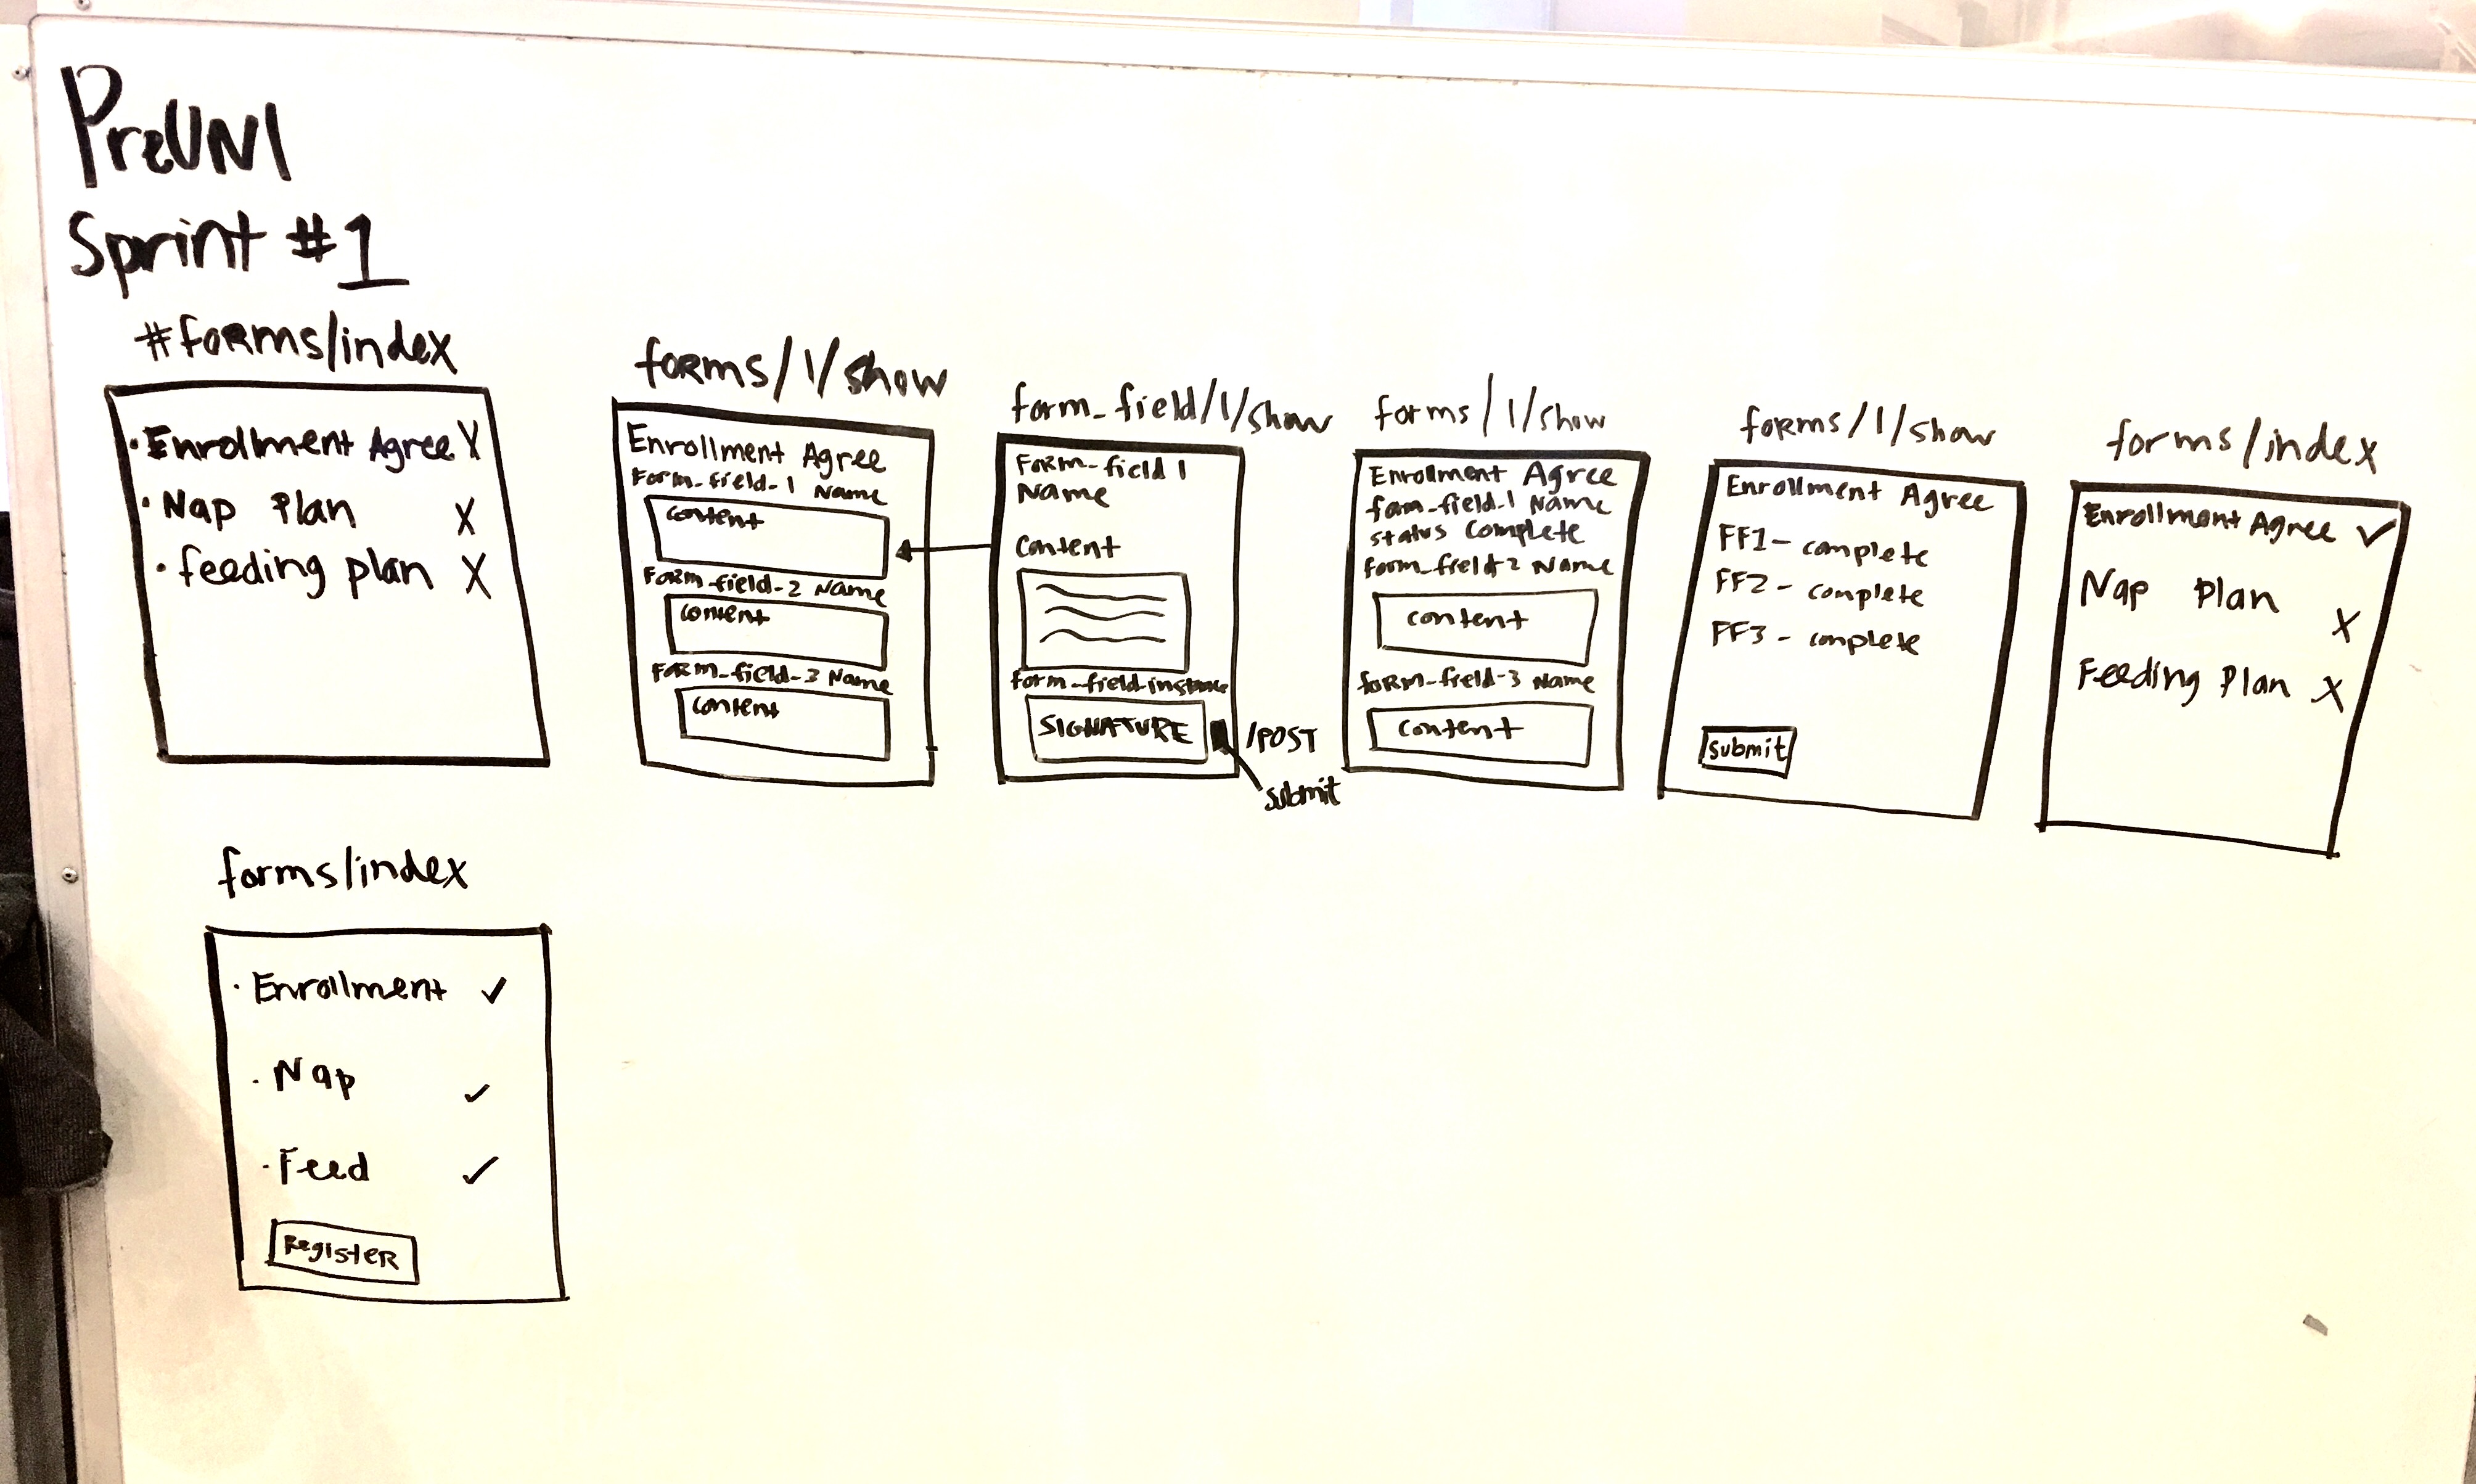 PreUNI
Sprint #1
#forms/index
· Enrollment Agree X
· Nap Plan X
· feeding plan X
forms/1/show
Enrollment Agree
Form_field_1 Name
content
Form_field_2 Name
content
Form_field_3 Name
content
form_field/1/show
Form_field 1
Name
Content
form_field_instance
SIGNATURE
/POST
submit
forms/1/show
Enrollment Agree
form_field_1 Name
status Complete
form_field_2 Name
content
form_field_3 Name
content
forms/1/show
Enrollment Agree
FF1 - complete
FF2 - complete
FF3 - complete
submit
forms/index
Enrollment Agree ✓
Nap Plan X
Feeding Plan X
forms/index
· Enrollment ✓
· Nap ✓
· Feed ✓
Register